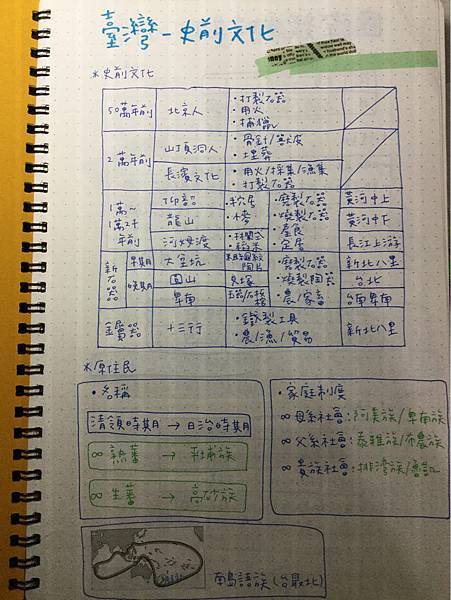 臺灣-史前文化
*史前文化
50萬年前 北京人 ·打製石器
·用火
·捕獵
2萬年前 山頂洞人 ·骨針/獸皮
·埋葬
長濱文化 ·用火/採集/漁集
·打製石器
1萬~ 仰韶 ·穴居 ·磨製石器 黃河中上
1萬2千 龍山 ·燒製石器 黃河中下
年前 河姆渡 ·干闌式 ·畜食 長江上游
·稻米 ·定居
新石器 早期 大坌坑 陶片 ·磨製石器 新北八里
晚期 圓山 貝塚 ·燒製陶器 台北
卑南 ·農/家畜 台東卑南
鐵器 十三行 ·鐵製工具 新北八里
·農/漁/貿易
*原住民
·名稱
清領時期 → 日治時期
∞熟蕃 → 平埔族
∞生蕃 → 高砂族
·家庭制度
∞母系社會:阿美族/卑南族
∞父系社會:泰雅族/布農族
∞貴族社會:排灣族/魯凱
南島語族(台最北)